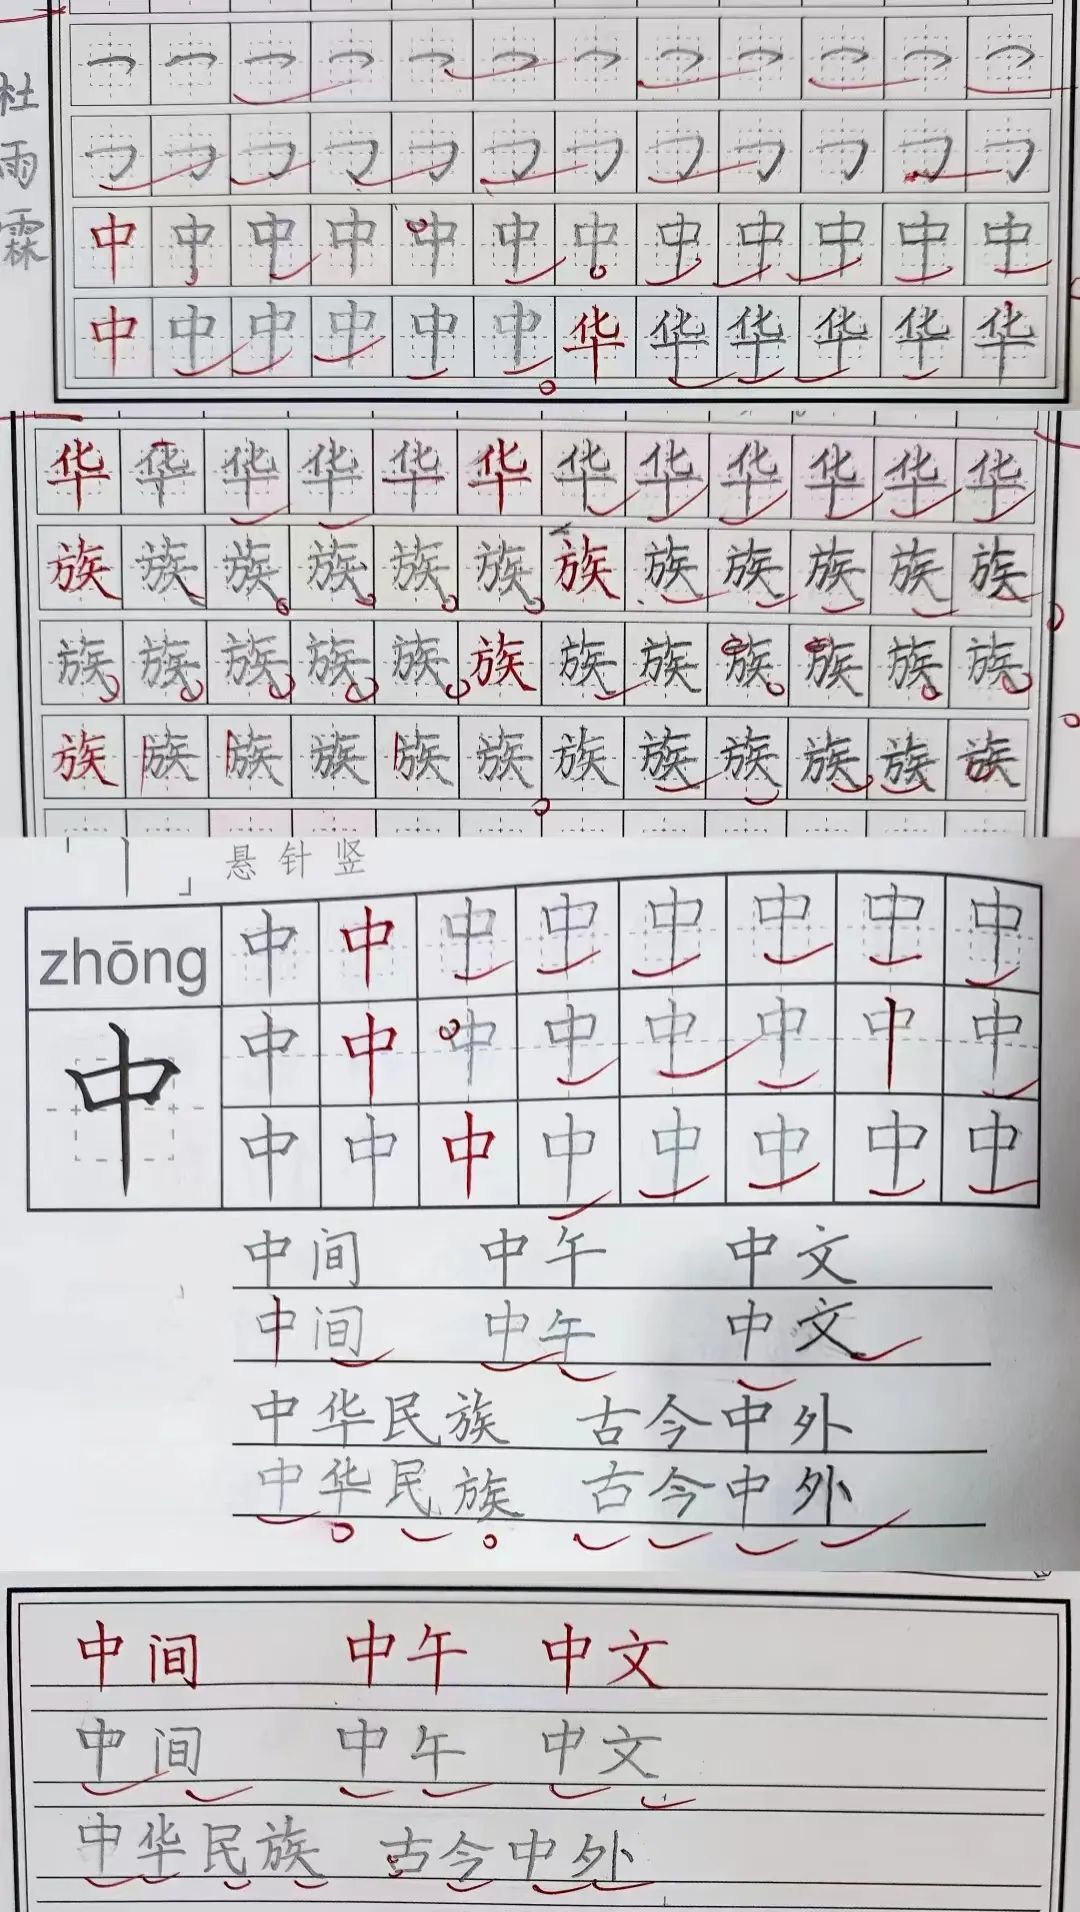 杜雨霖
中中中中中中中中中中中中
中中中中中中华华华华华华
华华华华华华华华华华华华
族族族族族族族族族族族族
族族族族族族族族族族族族
族族族族族族族族族族族族
「丨」悬针竖
zhōng 中中中中中中中中
中 中中中中中中中中
中中中中中中中中
中间 中午 中文
中间 中午 中文
中华民族 古今中外
中华民族 古今中外
中间 中午 中文
中间 中午 中文
中华民族 古今中外